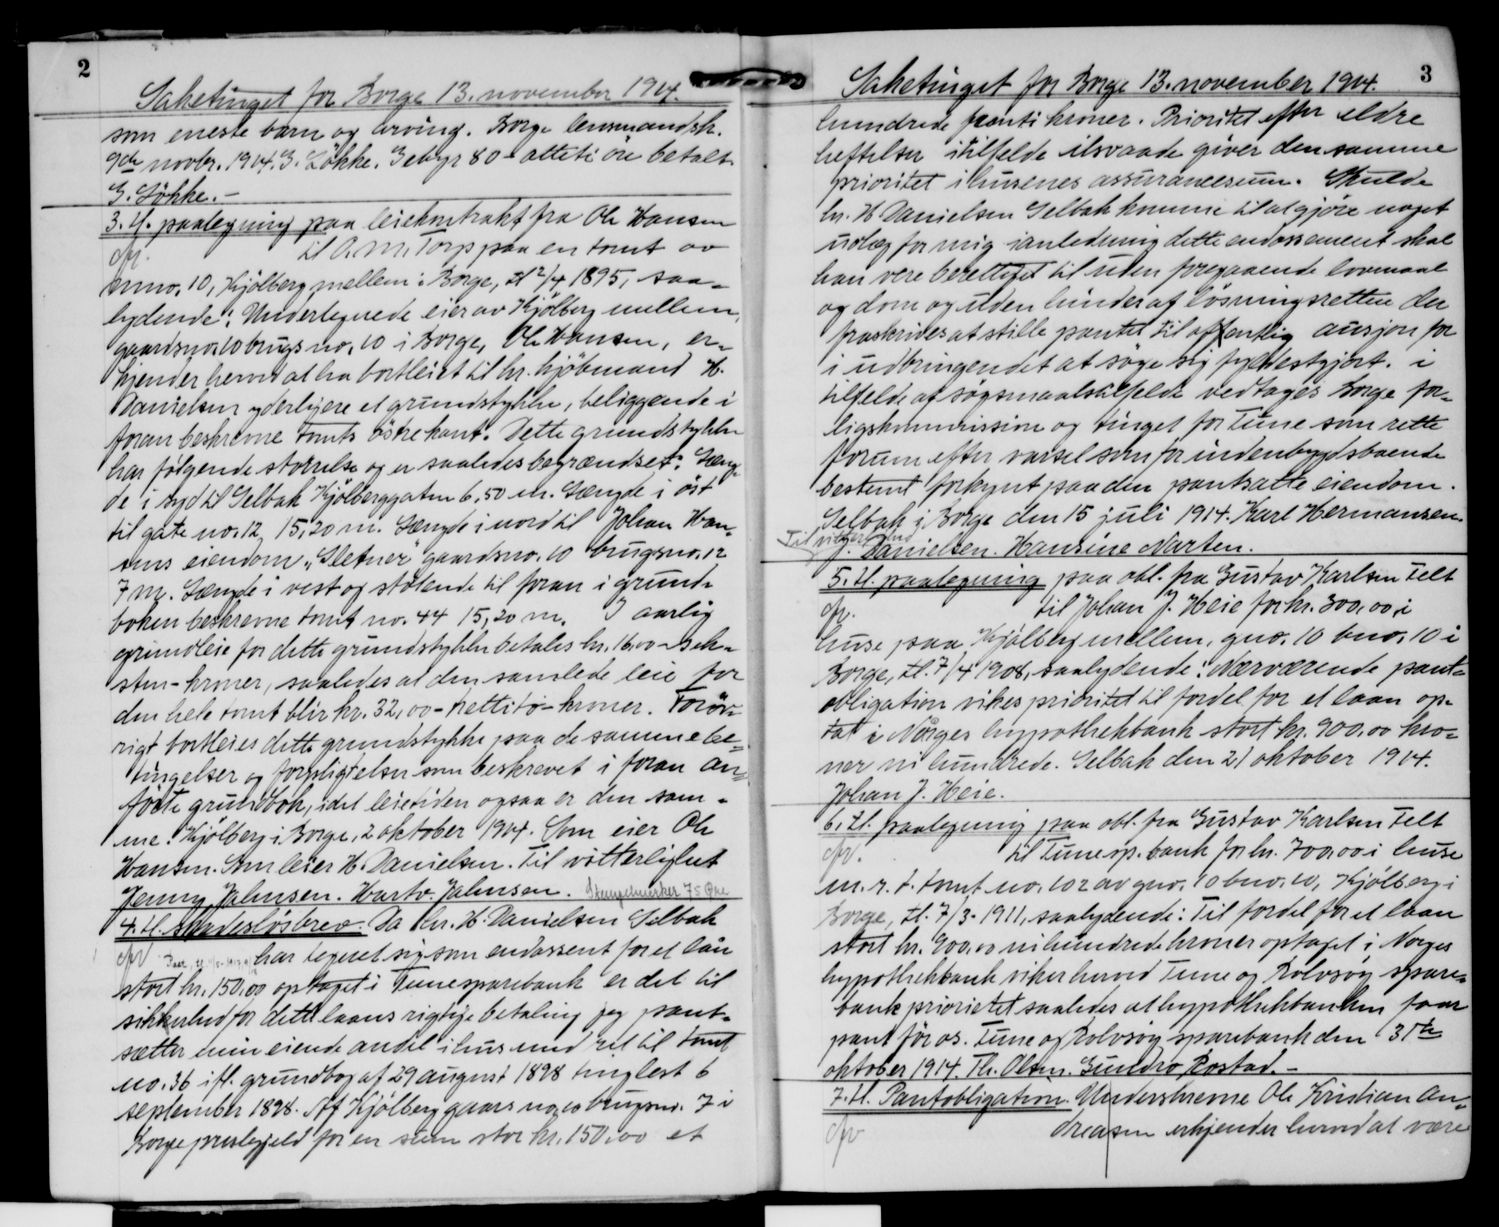 2
Saketinget for Borge 13. november 1914.
som eneste barn og arving. Borge lensmandsk.
9de novbr. 1914. G. Løkke. Gebyr 80 - otteti øre betalt
G. Løkke. -
3. Tl. paategning paa leiekontrakt fra Ole Hansen
til A. M. Torp paa en tomt av
gnno. 10, Kjølberg mellem i Borge, tl 2/4 1895, saa-
lydende: Undertegnede eier av Kjølberg mellem,
gaardsno. 10 brugsno. 10 i Borge, Ole Hansen, er-
kjender herved at ha bortleiet til hr. kjøbmand H.
Danielsen yderligere et grundstykke, beliggende i
foran beskrevne tomts østre kant. Dette grundstykke
har følgende størrelse og er saaledes begrændset: Læng-
de i syd til Selbak Kjølberggaten 6,50 m. Længde i øst
til gate no. 12, 15,20 m. Længde i nord til Johan Han-
sens eiendom "Sletner" gaardsno. 10 brugsno. 12
7 m. Længde i vest og støtende til foran i grund-
boken beskrevne tomt no. 44 15,20 m. I aarlig
grundleie for dette grundstykke betales kr. 16,00 - seks-
sten - kroner, saaledes at den samlede leie for
den hele tomt blir kr. 32,00 - trettito - kroner. Forøv-
rigt bortleies dette grundstykke paa de samme be-
tingelser og forpligtelser som beskrevet i foran an-
førte grundbok, idet leietiden ogsaa er den sam-
me. Kjølberg i Borge, 2 oktober 1914. Som eier Ole
Hansen. Som leier H. Danielsen. Til vitterlighet
Jenny Johnsen. Hartv. Johnsen. Stempelmerker 75 Øre
4. Tl. skadesløsbrev. Da hr. H. Danielsen Selbak
har tegnet sig som endossent for et lån
stort kr. 150,00 optaget i Tune sparebank er det til
sikkerhed for dette laans rigtige betaling jeg pant-
sætter min eiende andel i hus med ret til tomt
no. 36 ifl. grundbog af 29 august 1898 tinglest 6
september 1898. Af Kjølberg gaars no. 10 brugsno. 7 i
Borge prestegjeld for en sum stor kr. 150,00 et
3
Saketinget for Borge 13. november 1914.
hundrede femti kroner. Prioritet efter eldre
heftelser i tilfelde ilsvaade giver den samme
prioritet i husenes assurancesum. Skulde
hr. H. Danielsen Selbak komme til at gjøre noget
udlæg for mig i anledning dette endossement skal
han være berettiget til uden foregaaende lovmaal
og dom og uden hinder af løsningsretten der
fraskrives at stille pantet til offentlig auksjon for
i udbringendet at søge sig fyldestgjort. i
tilfelde af søgsmaals tilfelde vedtages Borge for-
ligskommission og tinget for Tune som rette
forum efter varsel som for indenbygdsboende
bestemt forkynt paa den pantsatte eiendom.
Selbak i Borge den 15 juli 1914. Karl Hermansen.
Til vitterlighed
J. Danielsen. Hansine Narten.
5. Tl. paategning paa obl. fra Gustav Karlsen Felt
til Johan J. Heie for kr. 300,00 i
huse paa Kjølberg mellem, gno. 10 bno. 10 i
Borge, tl. 7/4 1908, saalydende: Nærværende pant-
obligation vikes prioritet til fordel for et laan op-
tat i Norges hypothekbank stort kr. 900,00 kro-
ner ni hundrede. Selbak den 21 oktober 1914.
Johan J. Heie.
6. Tl. paategning paa obl. fra Gustav Karlsen Felt
til Tune sp. bank for kr. 700,00 i huse
m. r. t. tomt no. 102 av gno. 10 bno. 10, Kjølberg i
Borge, tl. 7/3 - 1911, saalydende: Til fordel for et laan
stort kr. 900,00 ni hundrede kroner optaget i Norges
hypothekbank viker herved Tune og Rolvsøy spare-
bank prioritet saaledes at hypothekbanken faar
pant før os. Tune og Rolvsøy sparebank den 31te
oktober 1914. Th. Olsen. Gundro Rostad. -
7. Tl. Pantobligation. Underskrevne Ole Kristian An-
dreasen erkjender herved at være